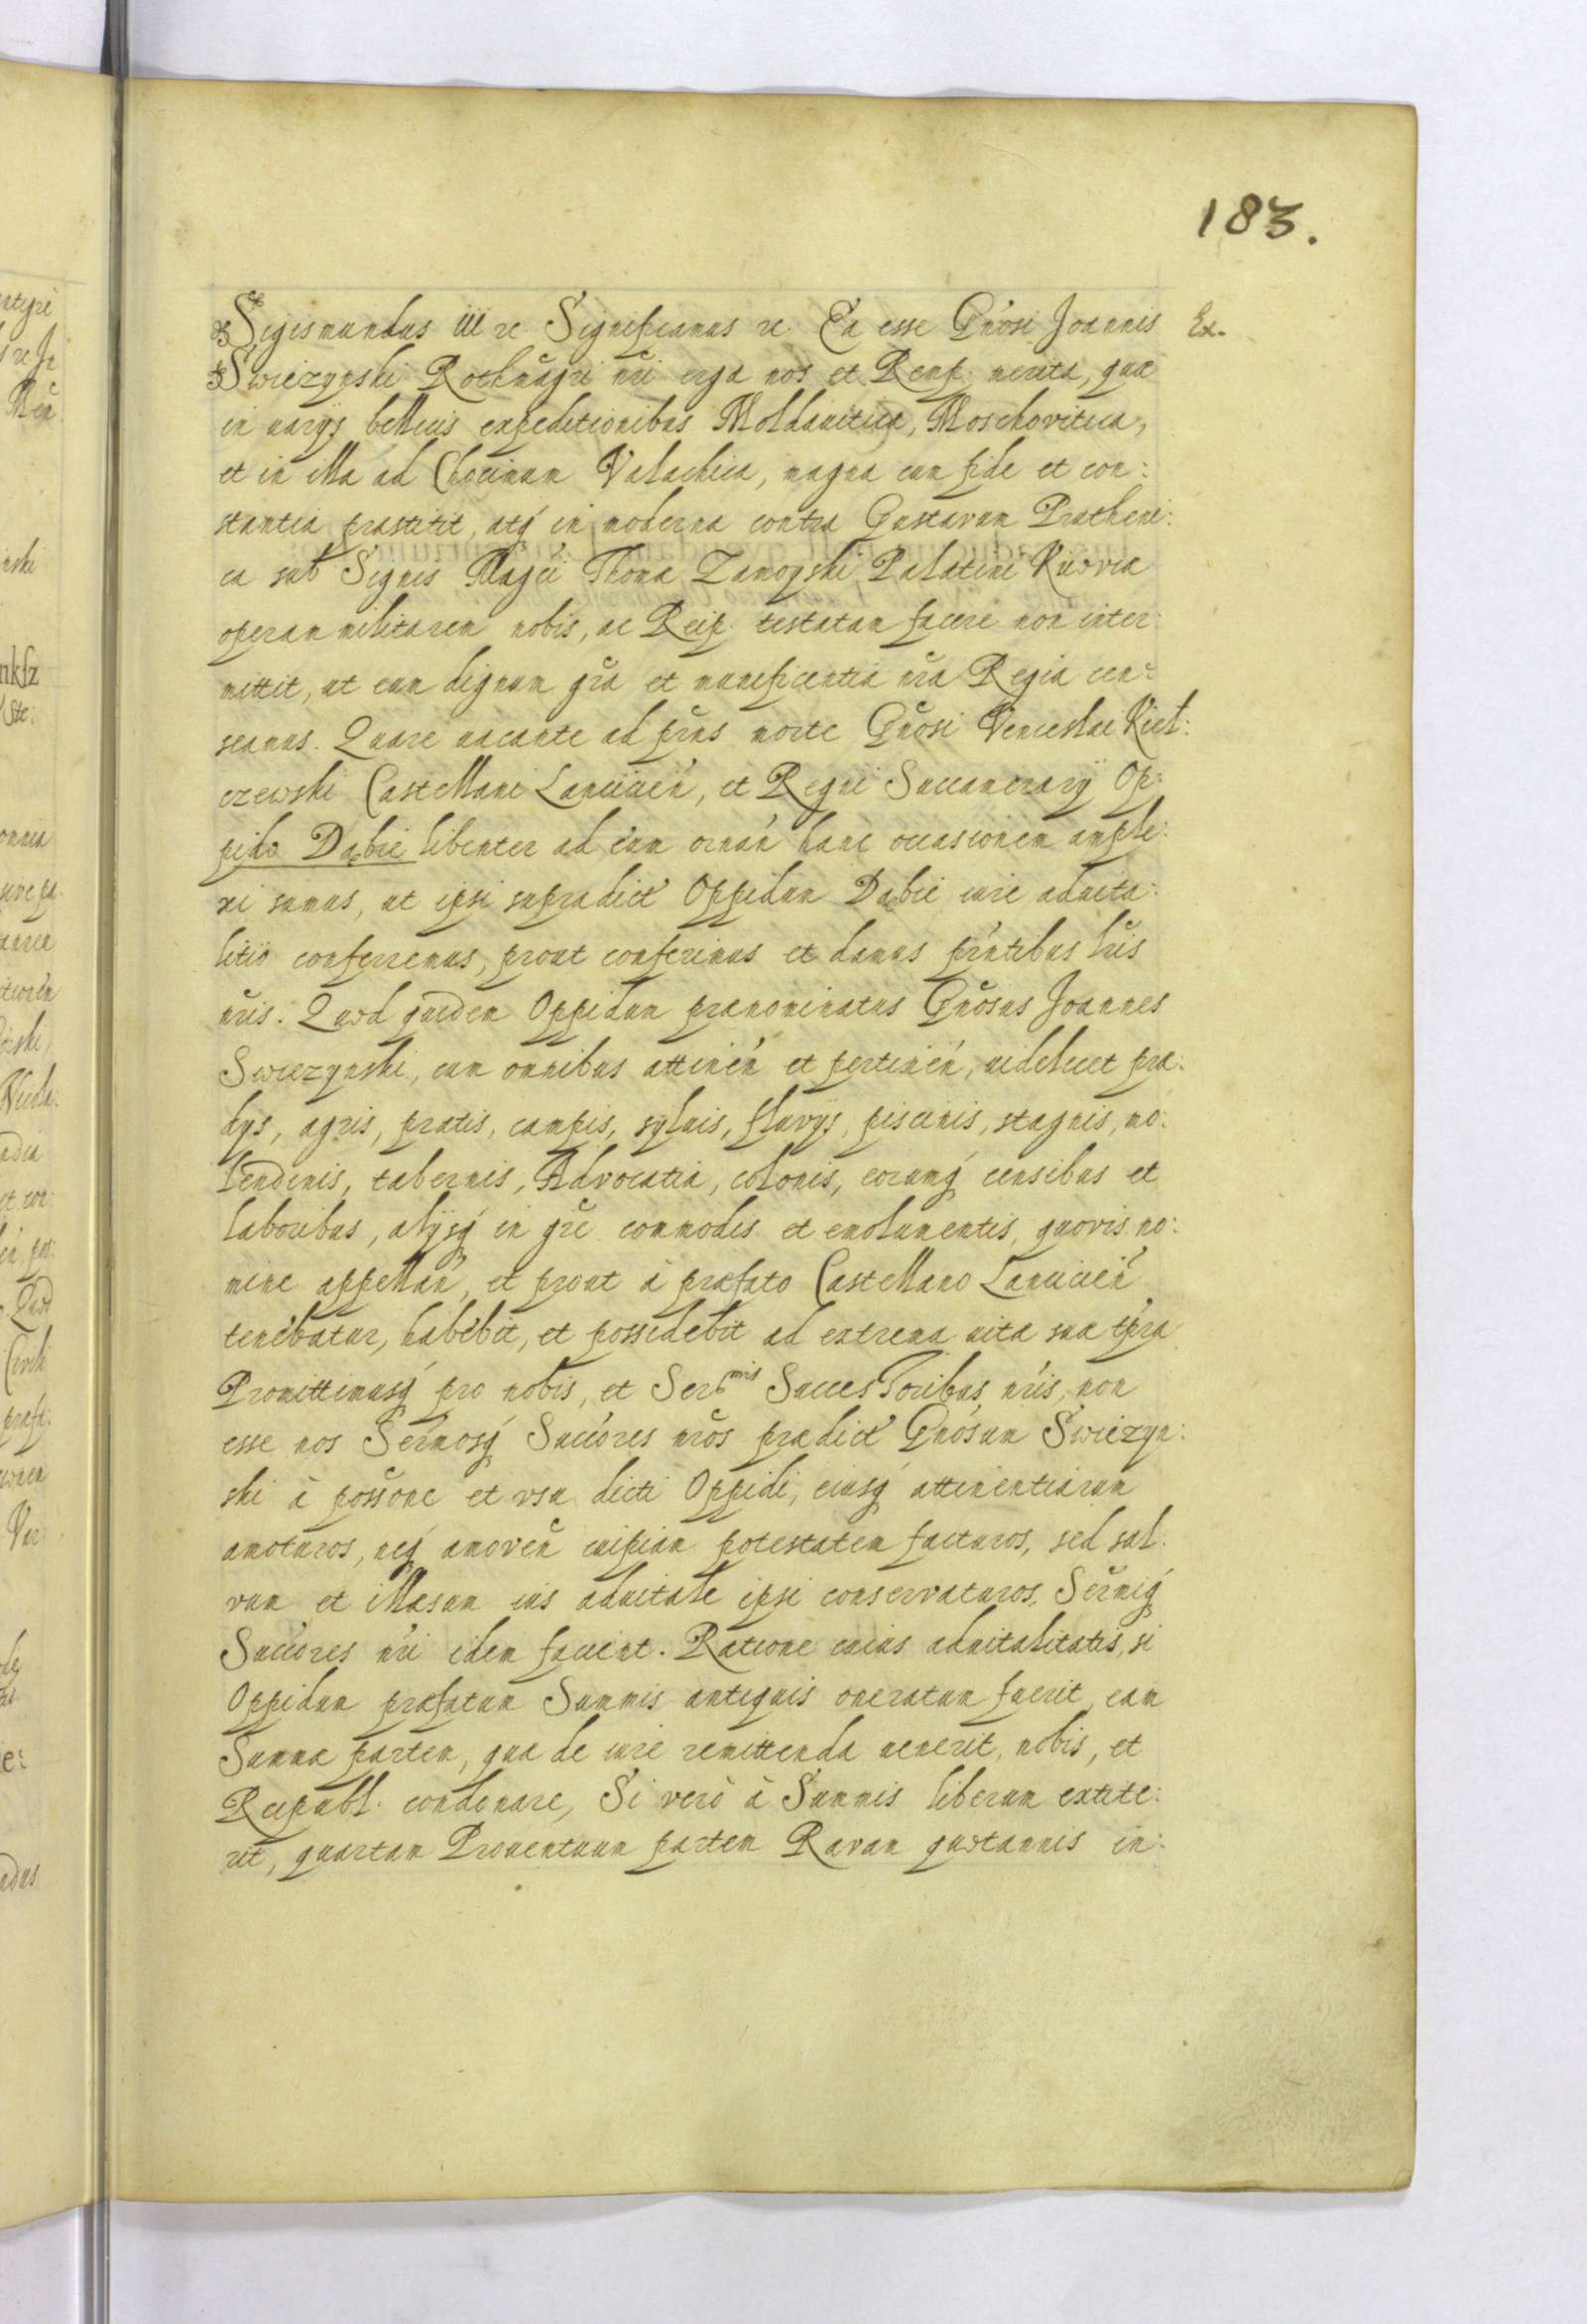 183.
Sigismundus III rc Significamus rc Ea esse Gn̄osi Joannis Ex.
Swiezynski Rothmagri nr̄i erga nos et Remp. merita, quæ
in uarijs bellicis expeditionibus Moldauitica, Moschovitica,
et in illa ad Chocimum Valachica, magna cum fide et con:
stantia præstitit, atq́ in moderna contra Gustavum Prutheni:
ca sub Signis Mag̃ci Thomæ Zamoyski Palatini Kiioviæ
operam militarem nobis, ac Reip. testatam facere non inter:
mittit, ut eum dignum gr̄a et munificentia nr̄a Regia cen:
seamus. Quare uacante ad prn̄s morte Gn̄osi Venceslai Kieł:
czewski Castellani Lancicień, et Regni Succamerarij Op:
pido Dąbie libenter ad eum ornań hanc occasionem ample:
xi sumus, ut ipsi supradict Oppidum Dąbie iure aduita:
litio conferremus, prout conferimus et damus prn̄tibus lr̄is
nr̄is. Quod quidem Oppidum prænominatus Gn̄osus Joannes
Swiezynski, cum omnibus attineń et pertineń, uidelicet præ:
dys, agris, pratis, campis, syluis, fluvijs, piscinis, stagnis, mo:
lendinis, tabernis, Advocatia, colonis, eorumq́ censibus et
laboribus, alijsq́ in gr̄e commodis et emolumentis, quovis no:
mine appellań, et prout à præfato Castellano Lancicień
tenebatur, habebit, et possidebit ad extrema uitæ suæ tp̄ra
Promittimusq́ pro nobis, et Ser͠mis Successoribus nr̄is, non
esse nos Sermosq́ Succōres nr̄os prædict Gn̄osum Swiezyn:
ski à possōne et vsu dicti Oppidi, eiusq́ attinentiarum
amoturos, neq́ amoveñ cuipiam potestatem facturos, sed sal:
vum et illæsum ius aduitale ipsi conservaturos, Sermiq́
Succōres nr̄i idem facient. Ratione cuius aduitalitatis, si
Oppidum præfatum Summis antiquis oneratum fuerit, eam
Summæ partem, quæ de iure remittenda uenerit, nobis, et
Reipubl. condonare, Si verò à Summis liberum extite:
rit, quartam Prouentuum partem Ravam quotannis in: